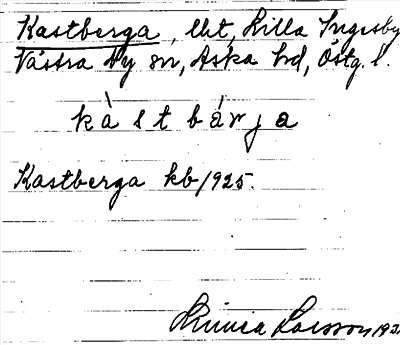 Kastberga, lht, Lilla Ingesby
Västra Ny sn, Aska hd, Östg. l.
kàstbárja
Kastberga kb 1925.
Linnea Larsson 193